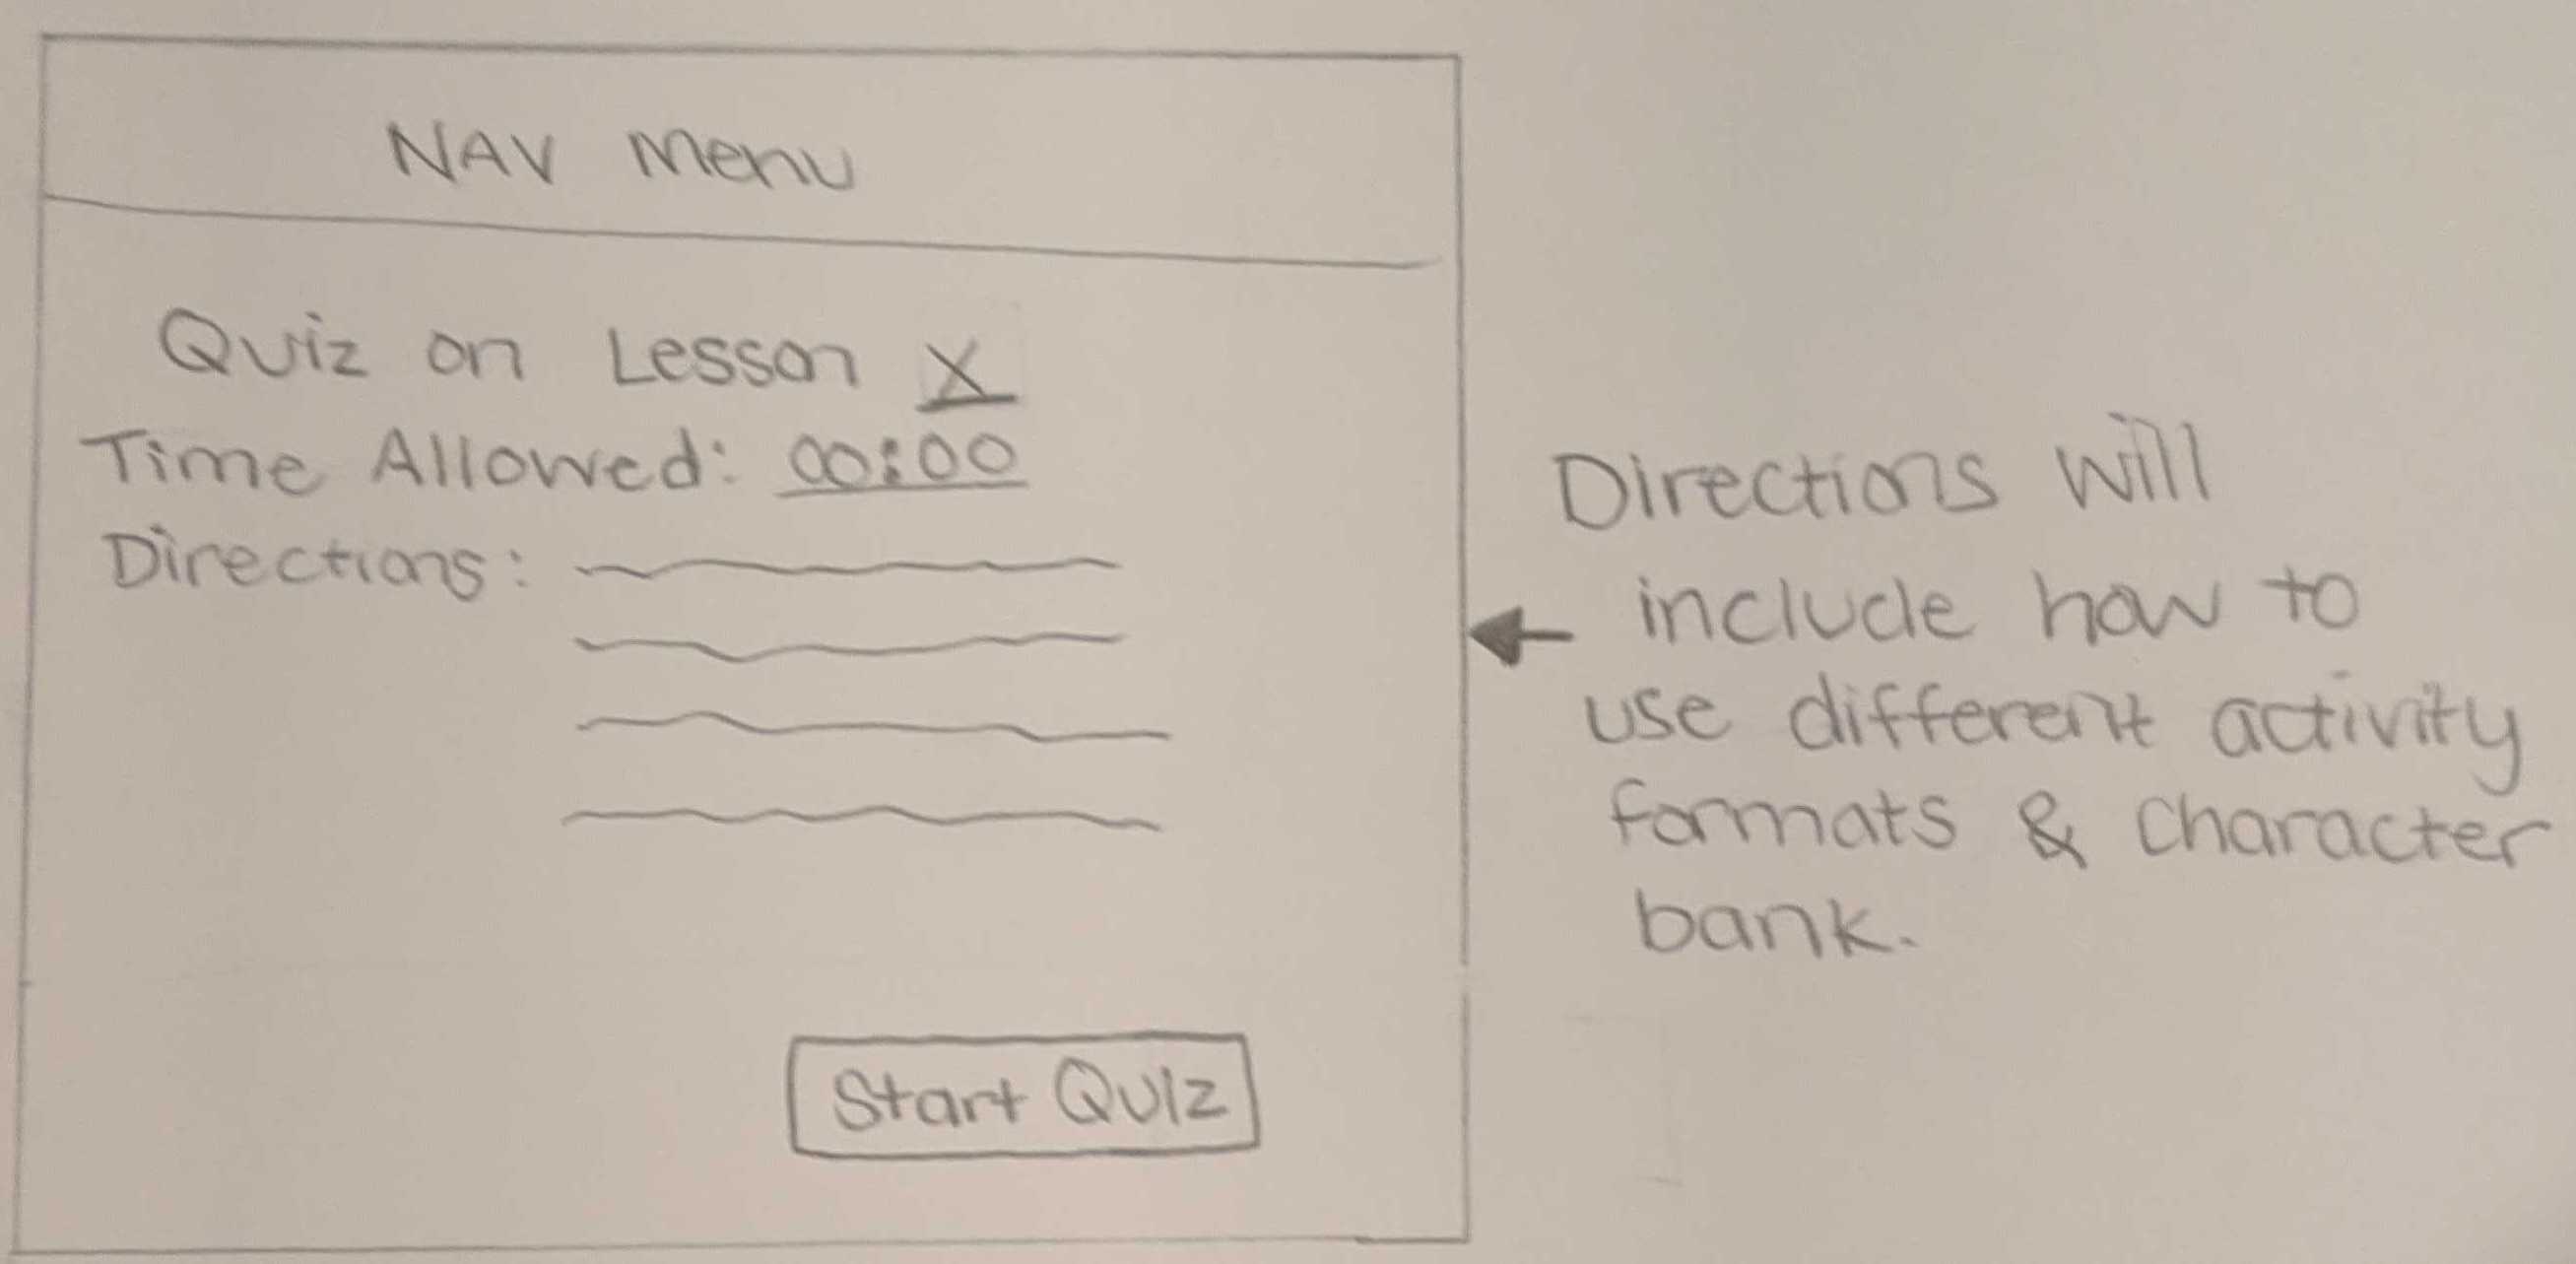 NAV Menu
Quiz on Lesson X
Time Allowed: 00:00
Directions:
Start Quiz
Directions will
include how to
use different activity
formats & character
bank.